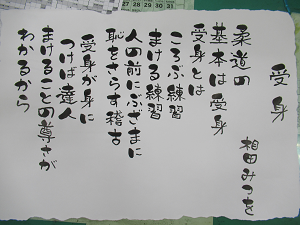 受身
相田みつを
柔道の
基本は受身
受身とは
ころぶ練習
まける練習
人の前にぶざまに
恥をさらす稽古
受身が身に
つけば達人
まけることの尊さが
わかるから
27 28 29 30 31